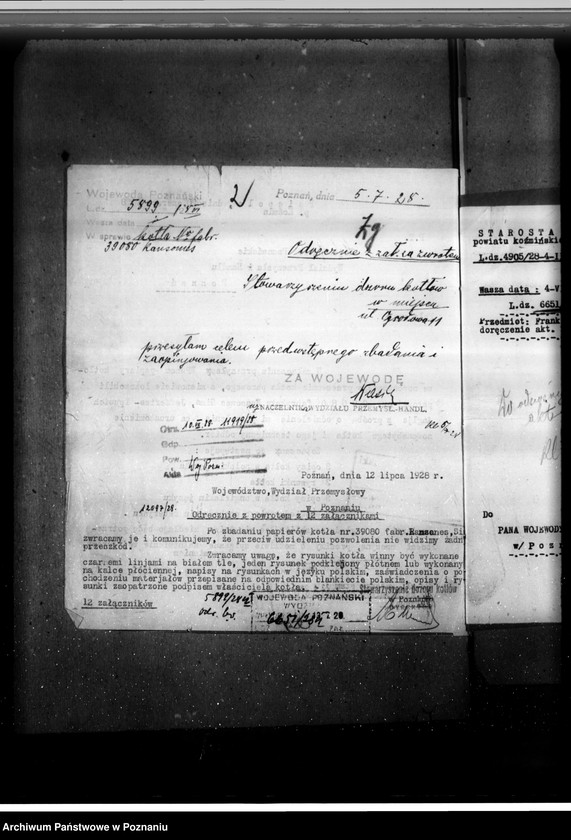 Wojewoda Poznański
Poznań, dnia 5.7.28.
L.dz. 5899
W sprawie kotła No fabr.
39080 Ransomes
Odręcznie z zał. za zwrotem
Stowarzyszeniu dozoru kotłów
w miejscu
ul
przesyłam celem przedwstępnego zbadania i
zaopinjowania.
ZA WOJEWODĘ
NACZELNIK WYDZIAŁU PRZEMYSŁ.-HANDL.
Otrz. 10.VII.28 11919/28
Odp.
Pow.
Akta Woj Pozn.
Poznań, dnia 12 lipca 1928 r.
Województwo, Wydział Przemysłowy
w Poznaniu
12097/28.
Odręcznie z powrotem z 12 załącznikami
Po zbadaniu papierów kotła nr.39080 fabr.
zwracamy je i komunikujemy, że przeciw udzieleniu pozwolenia nie widzimy żadn
przeszkód.
Zwracamy uwagę, że rysunki kotła winny być wykonane
czarnemi linjami na białem tle, jeden rysunek podklejony płótnem lub wykonany
na kalce płóciennej, napisy na rysunkach w języku polskim, zaświadczenia o po
chodzeniu materjałów przepisane na odpowiednim blankiecie polskim, opisy i ry
sunki zaopatrzone podpisem właściciela kotła.
Stowarzyszenie dozoru kotłów
12 załączników
WOJEWODA POZNAŃSKI
STAROSTA
powiatu koźmińskie
L.dz.4905/28-4-I
Wasza data : 4-V
L.dz. 6651
Przedmiet: Frank
doręczenie akt.
Do
PANA WOJEWODY
w/ Pozn
Archiwum Państwowe w Poznaniu